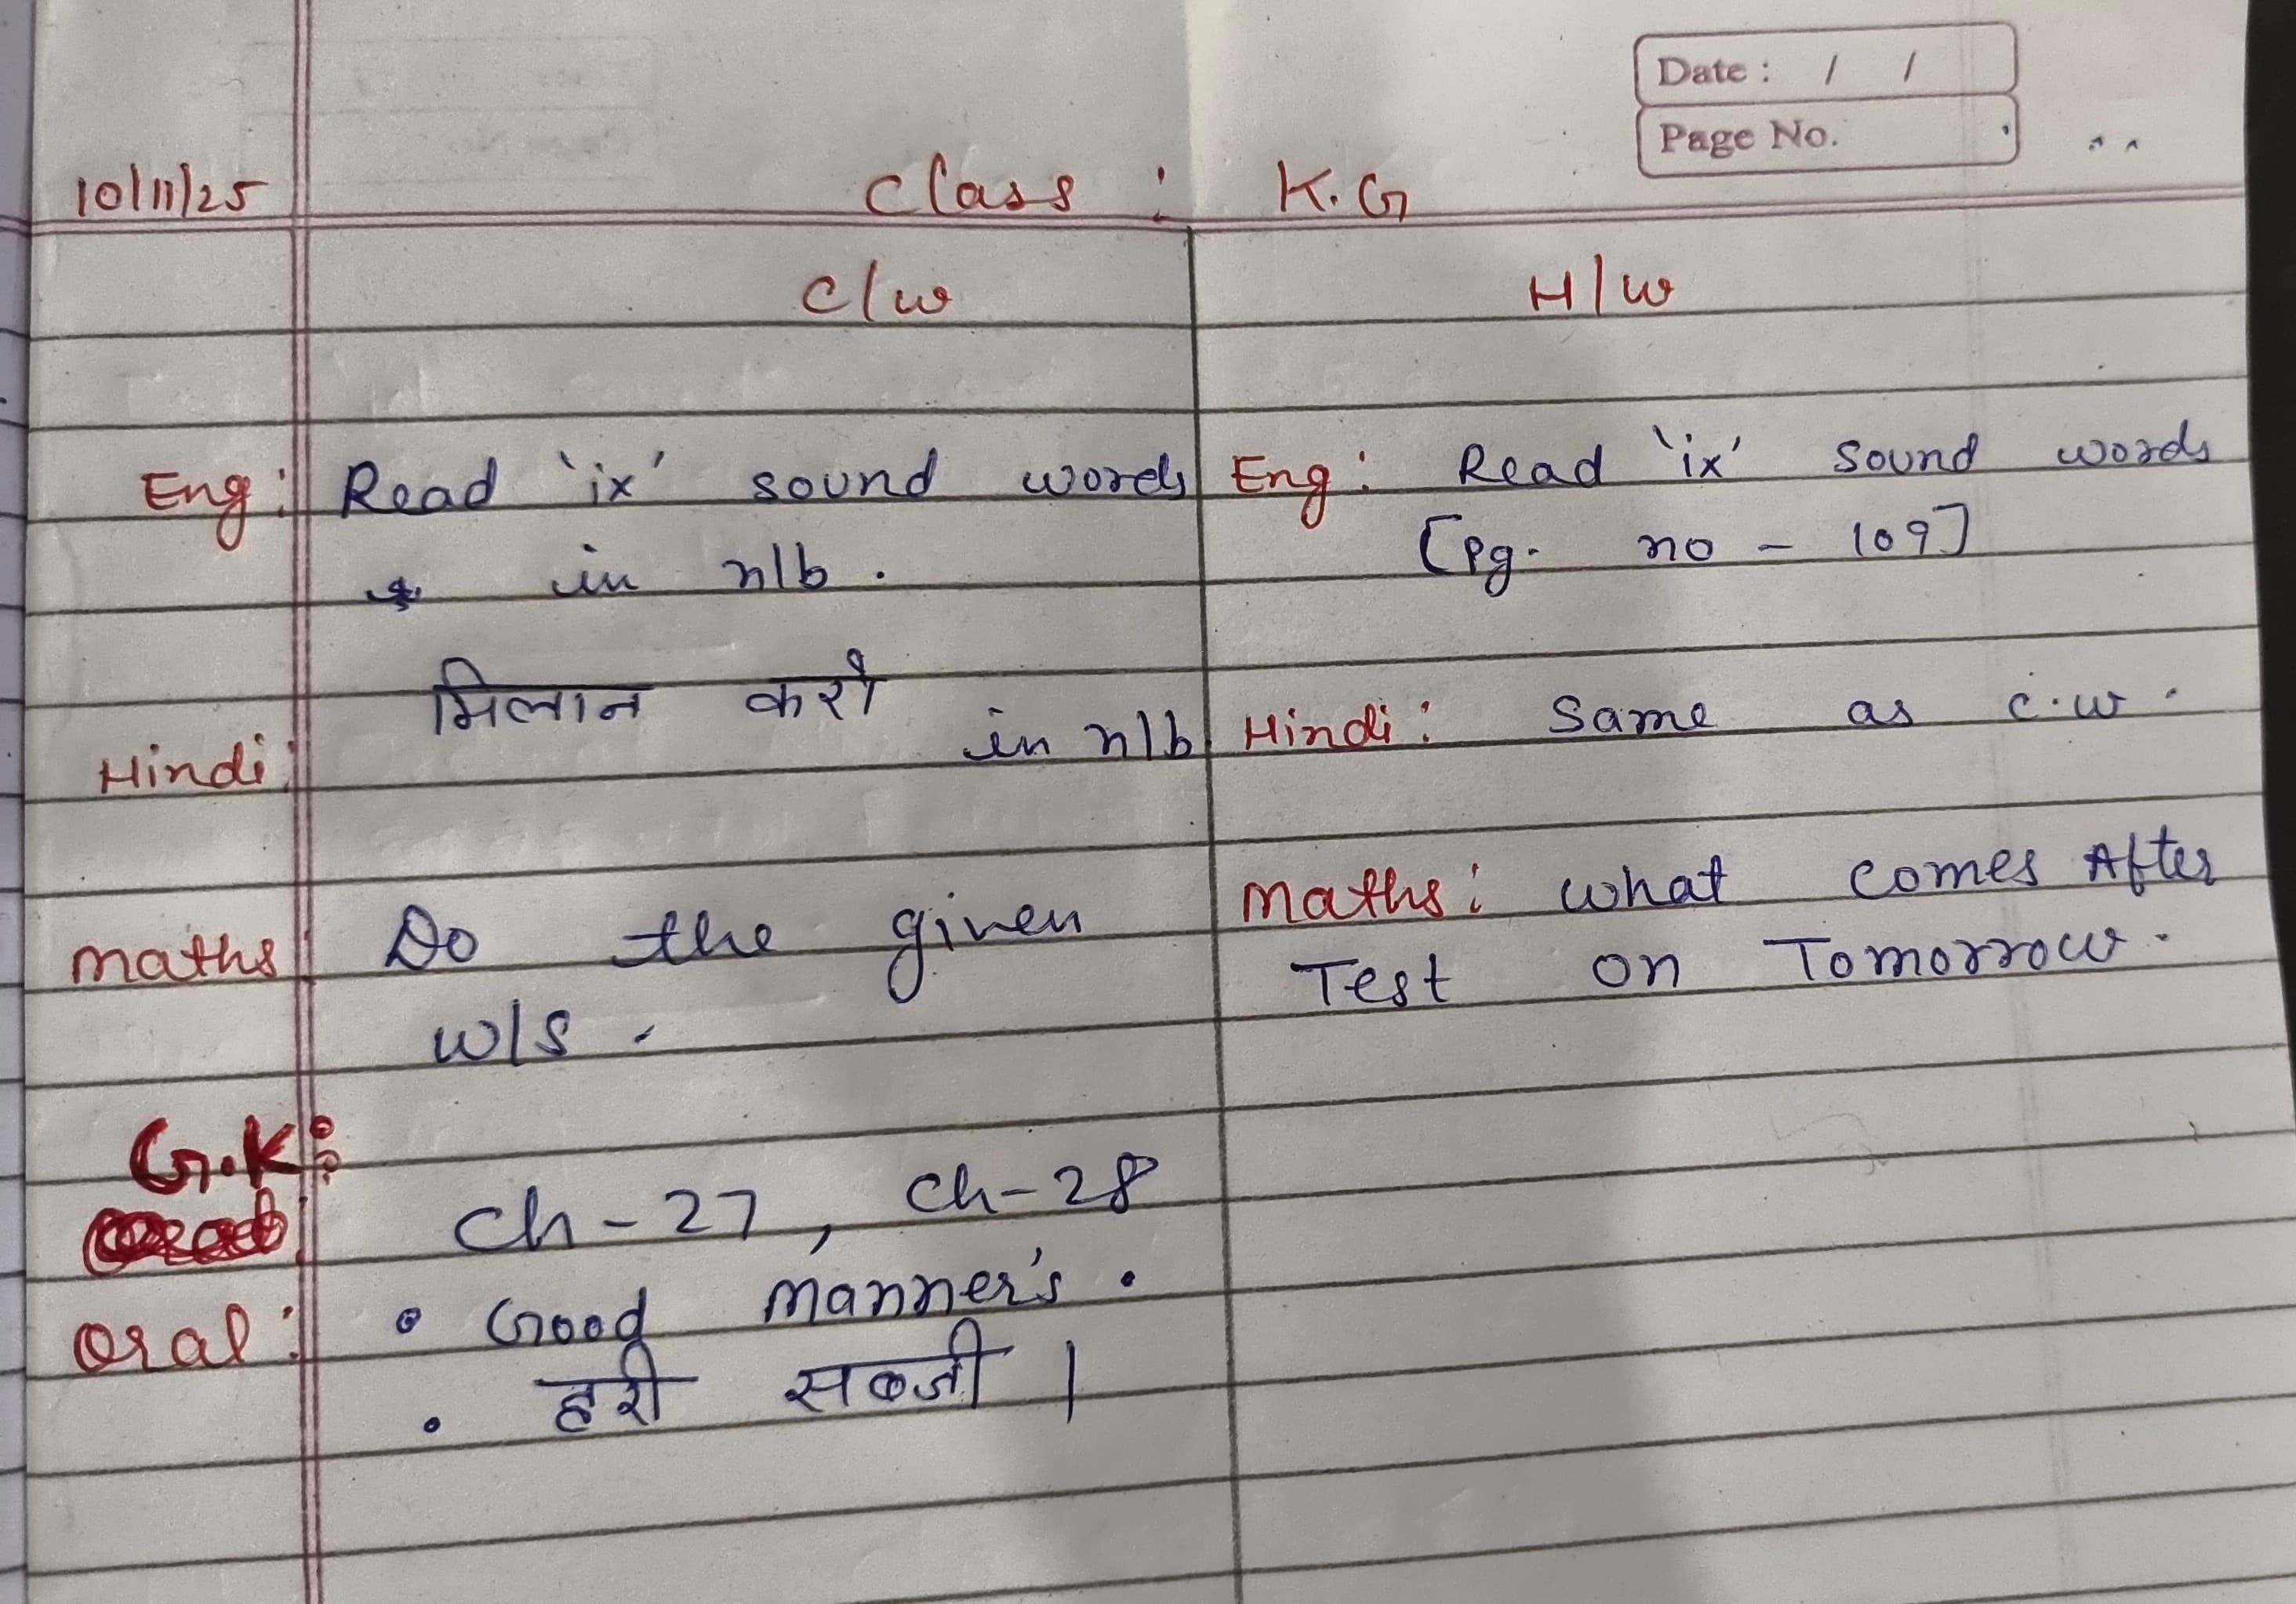 Date : / /
Page No.
10/11/25 Class : K.G
C/w H/w
Eng: Read 'ix' sound words
in n/b.
Hindi: मिलान करो in n/b
Maths: Do the given
w/s.
G.K: Ch-27, Ch-28
Oral: • Good manner's.
• हरी सब्जी ।
Eng: Read 'ix' sound words
[Pg. no - 109]
Hindi: Same as c.w.
Maths: What comes After
Test on Tomorrow.